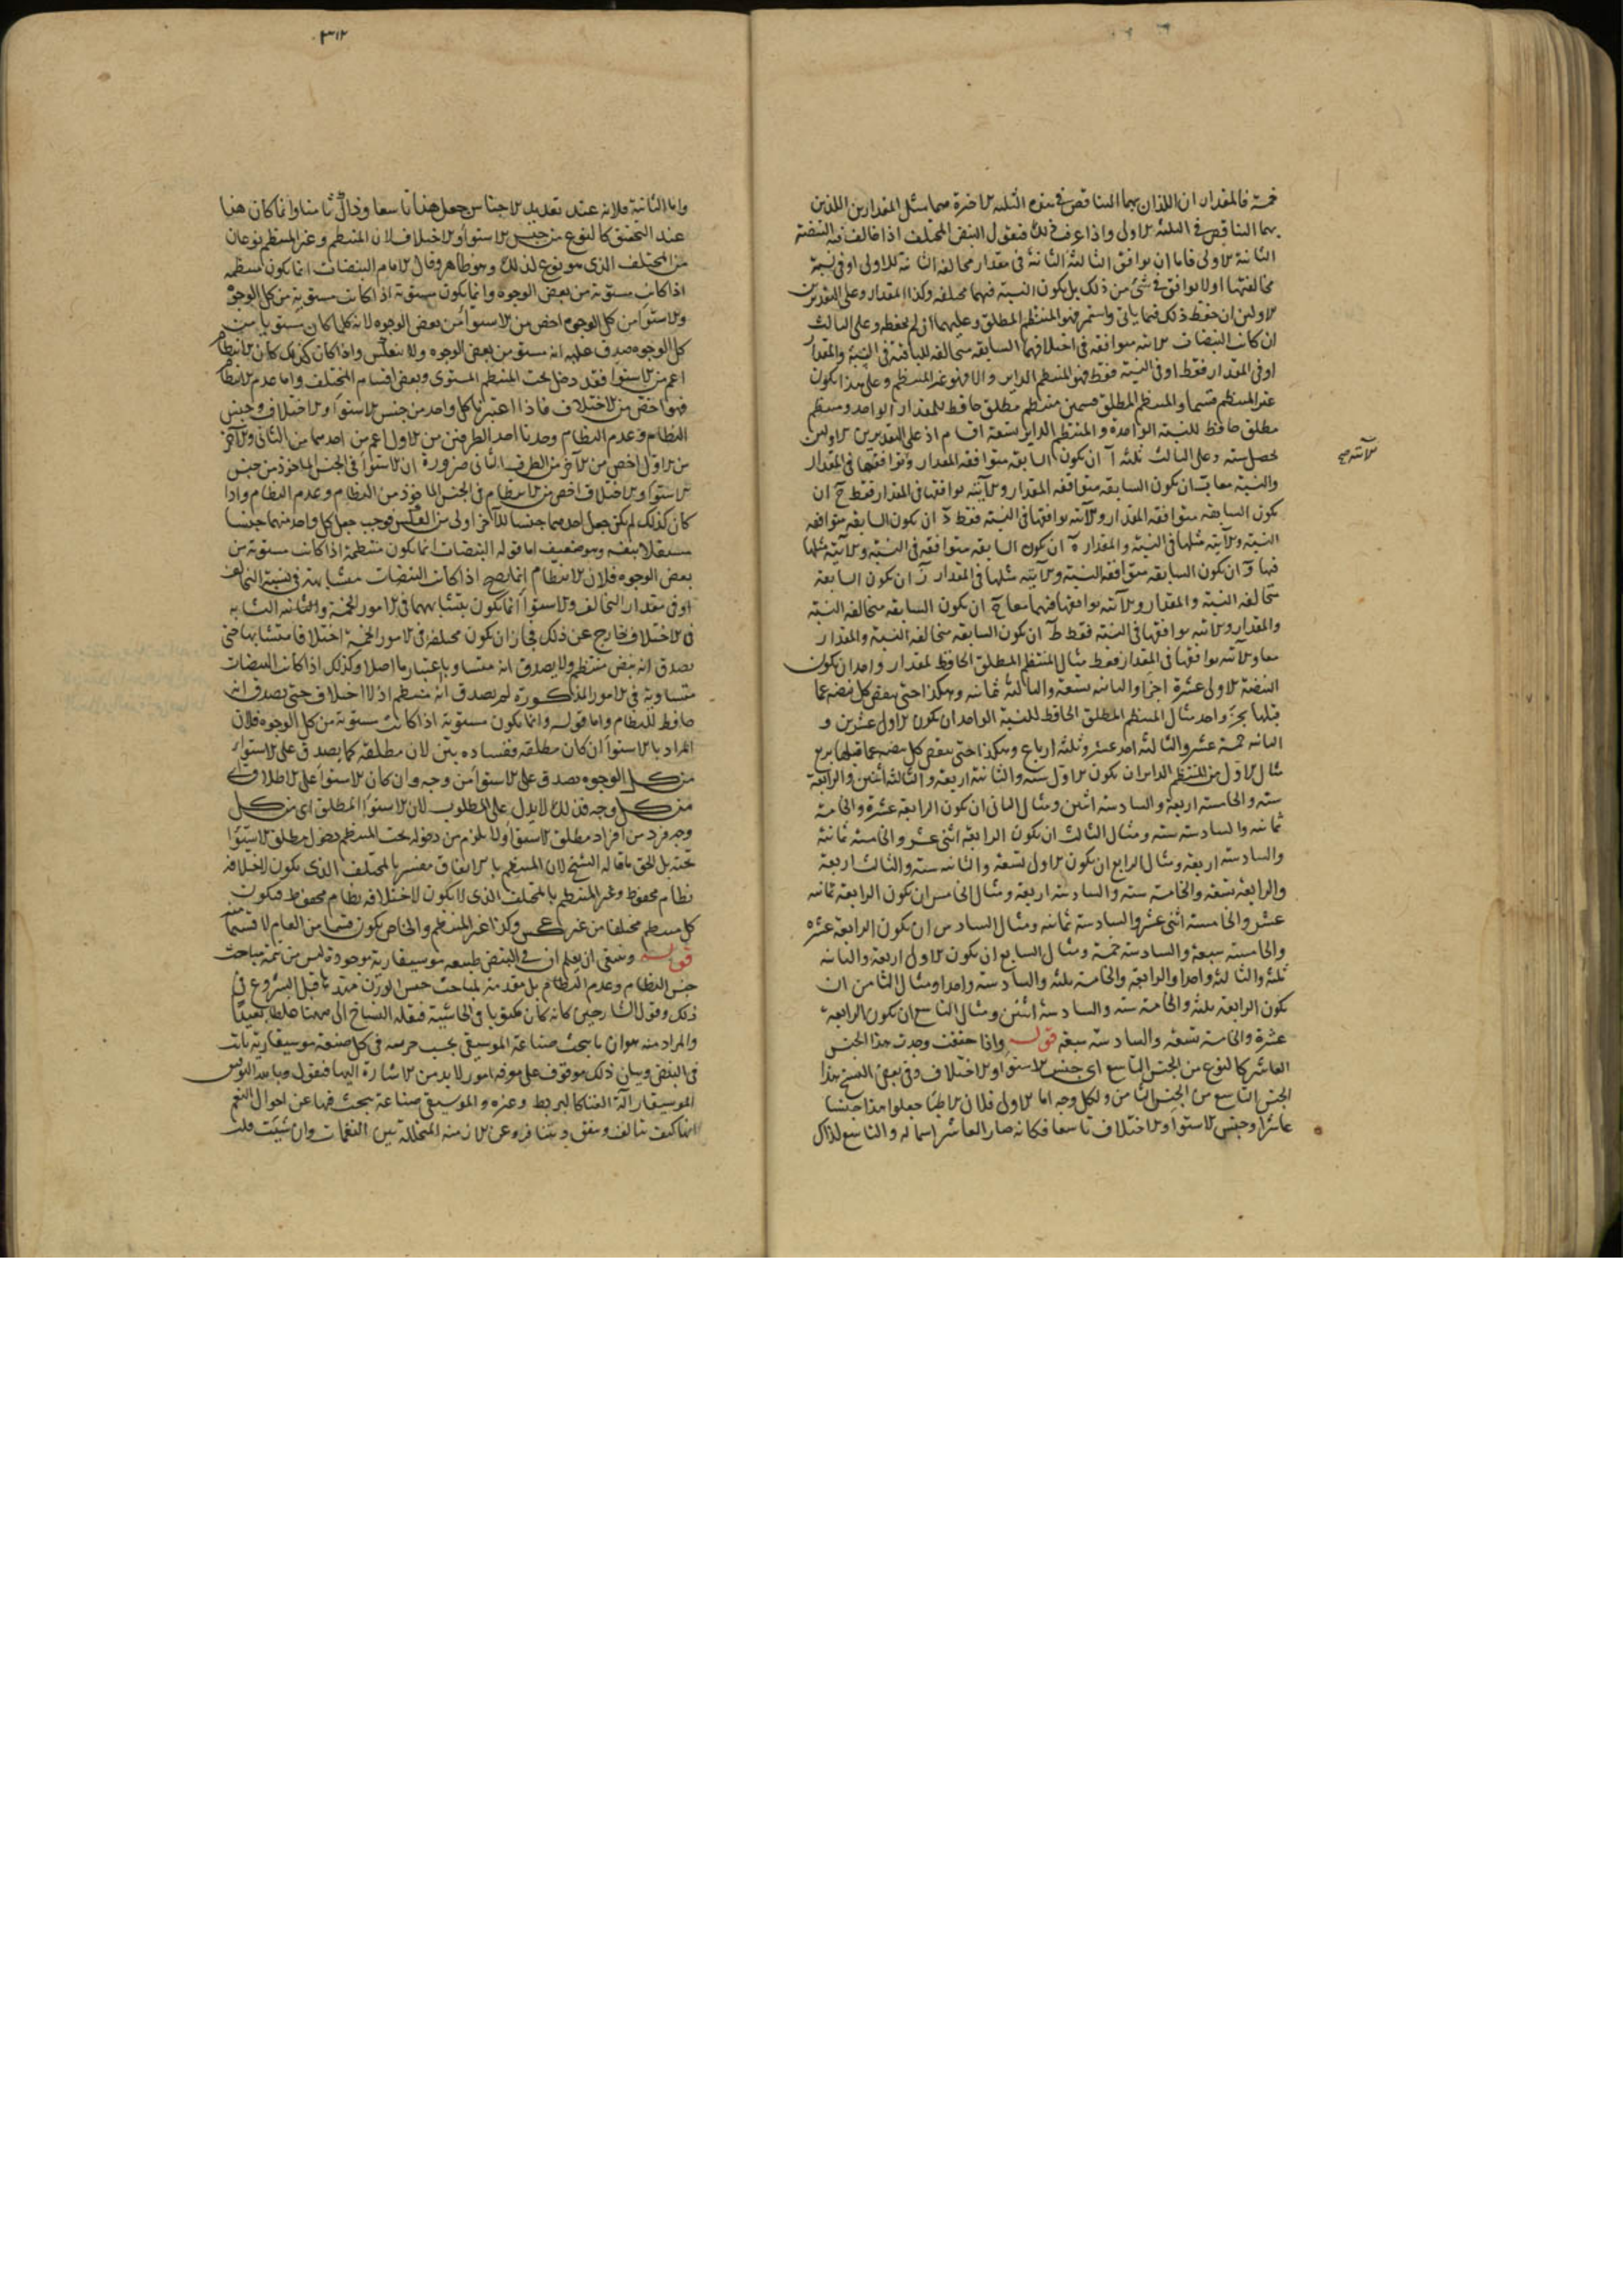 خمسة فالمقداران اللذان بهما التناقص في هذه الثلثة الاخيرة هما مثل المقدارين اللذين
بهما التناقص في الثلثة الاولى واذا عرفت ذلك فنقول النبض المختلف اذا خالف فيه النبضة
الثانية الاولى فاما ان يوافق الثالثة الثانية في مقدار مخالفة الثانية للاولى او في نسبة
مخالفتها او لا يوافق في شئ من ذلك بل يكون النسبة فيهما مختلفة وكذا المقدار وعلى التقديرين
الاولين ان حفظ ذلك فيما ياتي واستمر فهو المنتظم المطلق وعليهما ان لم يحفظه وعلى الثالث
ان كانت النبضات الاتية متوافقة في اختلافها السابقة مخالفة للباقية في النسبة والمقدار
او في المقدار فقط او في النسبة فقط فهو المنتظم الداير والا فهو غير المنتظم وعلى هذا يكون
غير المنتظم قسما والمنتظم المطلق قسمين منتظم مطلق حافظ للمقدار الواحد ومنتظم
مطلق حافظ للنسبة الواحدة والمنتظم الداير تسعة اقسام اذ على التقديرين الاولين
يحصل ستة وعلى الثالث ثلثة آ ان يكون السابقة متوافقة المقدار وتوافقها في المقدار
الاتية صح
والنسبة معا ب ان يكون السابقة متوافقة المقدار والاتية توافقها في المقدار فقط ج ان
يكون السابقة متوافقة المقدار والاتية توافقها في النسبة فقط د ان يكون السابقة متوافقة
النسبة والاتية مثلها في النسبة والمقدار ه ان يكون السابقة متوافقة في النسبة والاتية مثلها
فيها و ان يكون السابقة متوافقة النسبة والاتية مثلها في المقدار ز ان يكون السابقة
متخالفة النسبة والمقدار والاتية توافقها فيهما معا ح ان يكون السابقة متخالفة النسبة
والمقدار والاتية توافقها في النسبة فقط ط ان يكون السابقة متخالفة النسبة والمقدار
معا والاتية توافقها في المقدار فقط مثال المنتظم المطلق الحافظ لمقدار واحد ان يكون
النبضة الاولى عشرة اجزا والثانية تسعة والثالثة ثمانية وهكذا حتى ينقص كل نبضة عما
قبلها بجزء واحد مثال المنتظم المطلق الحافظ للنسبة الواحد ان يكون الاول عشرين و
الثانية خمسة عشر والثالثة احد عشر وثلثة ارباع وهكذا حتى ينقص كل نبضة عما قبلها بربع
مثال الاول من المنتظم الداير ان يكون الاول ستة والثانية اربعة والثالثة اثنين والرابعة
ستة والخامسة اربعة والسادسة اثنين ومثال الثاني ان يكون الرابعة عشرة والخامسة
ثمانية والسادسة ستة ومثال الثالث ان يكون الرابعة اثنى عشر والخامسة ثمانية
والسادسة اربعة ومثال الرابع ان يكون الاول تسعة والثانية ستة والثالث اربعة
والرابعة تسعة والخامسة ستة والسادسة اربعة ومثال الخامس ان يكون الرابعة ثمانية
عشر والخامسة اثنى عشر والسادسة ثمانية ومثال السادس ان يكون الرابعة عشرة
والخامسة سبعة والسادسة خمسة ومثال السابع ان يكون الاول اربعة والثانية
ثلثة والثالثة واحدا والرابعة والخامسة ثلثة والسادسة واحدا ومثال الثامن ان
يكون الرابعة ثلثة والخامسة ستة والسادسة اثنين ومثال التاسع ان يكون الرابعة
عشرة والخامسة تسعة والسادسة سبعة قوله واذا حققت وجدت هذا الجنس
العاشر كالنوع من الجنس التاسع اى جنس الاستواء والاختلاف وفي بعض النسخ هذا
الجنس التاسع من الجنس الثامن ولكل وجه اما الاول فلان الاطبا جعلوا هذا جنسا
عاشرا وجنس الاستواء والاختلاف تاسعا فكانه صار العاشر اسما له والتاسع لذاك
٣١٢
واما الثانية فلانه عند تعديد الاجناس جعل هذا تاسعا وذاك ثامنا وانما كان هذا
عند التحقيق كالنوع من جنس الاستواء والاختلاف لان المنتظم وغير المنتظم نوعان
من المختلف الذي هو نوع لذلك وهو ظاهر وقال الامام النبضات انما يكون منتظمة
اذا كانت مستوية من بعض الوجوه وانما يكون مستوية اذا كانت مستوية من كل الوجوه
والاستواء من كل الوجوه اخص من الاستواء من بعض الوجوه لانه كلما كان مستويا من
كل الوجوه صدق عليه انه مستو من بعض الوجوه ولا ينعكس واذا كان كذلك كان الانتظام
اعم من الاستواء فقد دخل تحت المنتظم المستوى وبعض اقسام المختلف واما عدم الانتظام
فهو اخص من الاختلاف فاذا اعتبرنا كل واحد من جنس الاستواء والاختلاف وجنس
النظام وعدم النظام وجدنا احد الطرفين من الاول اعم من احدهما من الثاني والآخر
من الاول اخص من الآخر من الطرف الثاني ضرورة ان الاستواء في الجنس الماخوذ من جنس
الاستواء والاختلاف اخص من الانتظام في الجنس الماخوذ من النظام وعدم النظام واذا
كان كذلك لم يكن جعل احدهما جنسا للآخر اولى من العكس فوجب جعل كل واحد منهما جنسا
مستقلا بنفسه وهو ضعيف اما قوله النبضات انما يكون منتظمة اذا كانت مستوية من
بعض الوجوه فلان الانتظام انما يصح اذا كانت النبضات متشابهة في نسبة التخالف
او في مقدار التخالف والاستواء انما يكون بتشابهها في الامور الخمسة والثانية التشابه
في الاختلاف خارج عن ذلك فجاز ان يكون مختلفة في الامور الخمسة اختلافا متشابها حتى
يصدق انه نبض منتظم ولا يصدق انه متساو باعتبار ما اصلا وكذلك اذا كانت النبضات
متساوية في الامور المذكورة لم يصدق انه منتظم اذ لا اختلاف حتى يصدق انه
حافظ للنظام واما قوله وانما يكون مستوية اذا كانت مستوية من كل الوجوه فلان
المراد بالاستواء ان كان مطلقه ففساده بين لان مطلقه كما يصدق على الاستواء
من كل الوجوه يصدق على الاستواء من وجه وان كان الاستواء على الاطلاق اي
من كل وجه فذلك لا يدل على المطلوب لان الاستواء المطلق اى من كل
وجه فرد من افراد مطلق الاستواء ولا يلزم من دخوله تحت المنتظم دخول مطلق الاستواء
تحته بل الحق ما قاله الشيخ لان المنتظم بالاتفاق مفسر بالمختلف الذي يكون لاختلافه
نظام محفوظ وغير المنتظم بالمختلف الذي لا يكون لاختلافه نظام محفوظ فيكون
كل منتظم مختلفا من غير عكس وكذا غير المنتظم والخاص يكون قسما من العام لا قسيما منه
قوله وينبغي ان يعلم ان في النبض طبيعة موسيقارية موجودة ليس من تتمة مباحث
جنس النظام وعدم النظام بل مقدمة لمباحث جنس الوزن قبل الشروع في
ذلك وقول الشارحين كانه كان مكتوبا في الحاشية فنقله النساخ الى ههنا غلطا بعيد
والمراد منه هو ان ما يبحث صناعة الموسيقى يجب في كل صنعة موسيقارية ثابت
في النبض وبيان ذلك موقوف على معرفة امور لابد من الاشارة اليها فنقول وبالله التوفيق
الموسيقار آلة الغنا كالبربط وغيره والموسيقى صناعة يبحث فيها عن احوال النغم
انها كيف تتالف وتتفق وتتنافر وعن الازمنة المتخللة بين النغمات وان شئت قلت